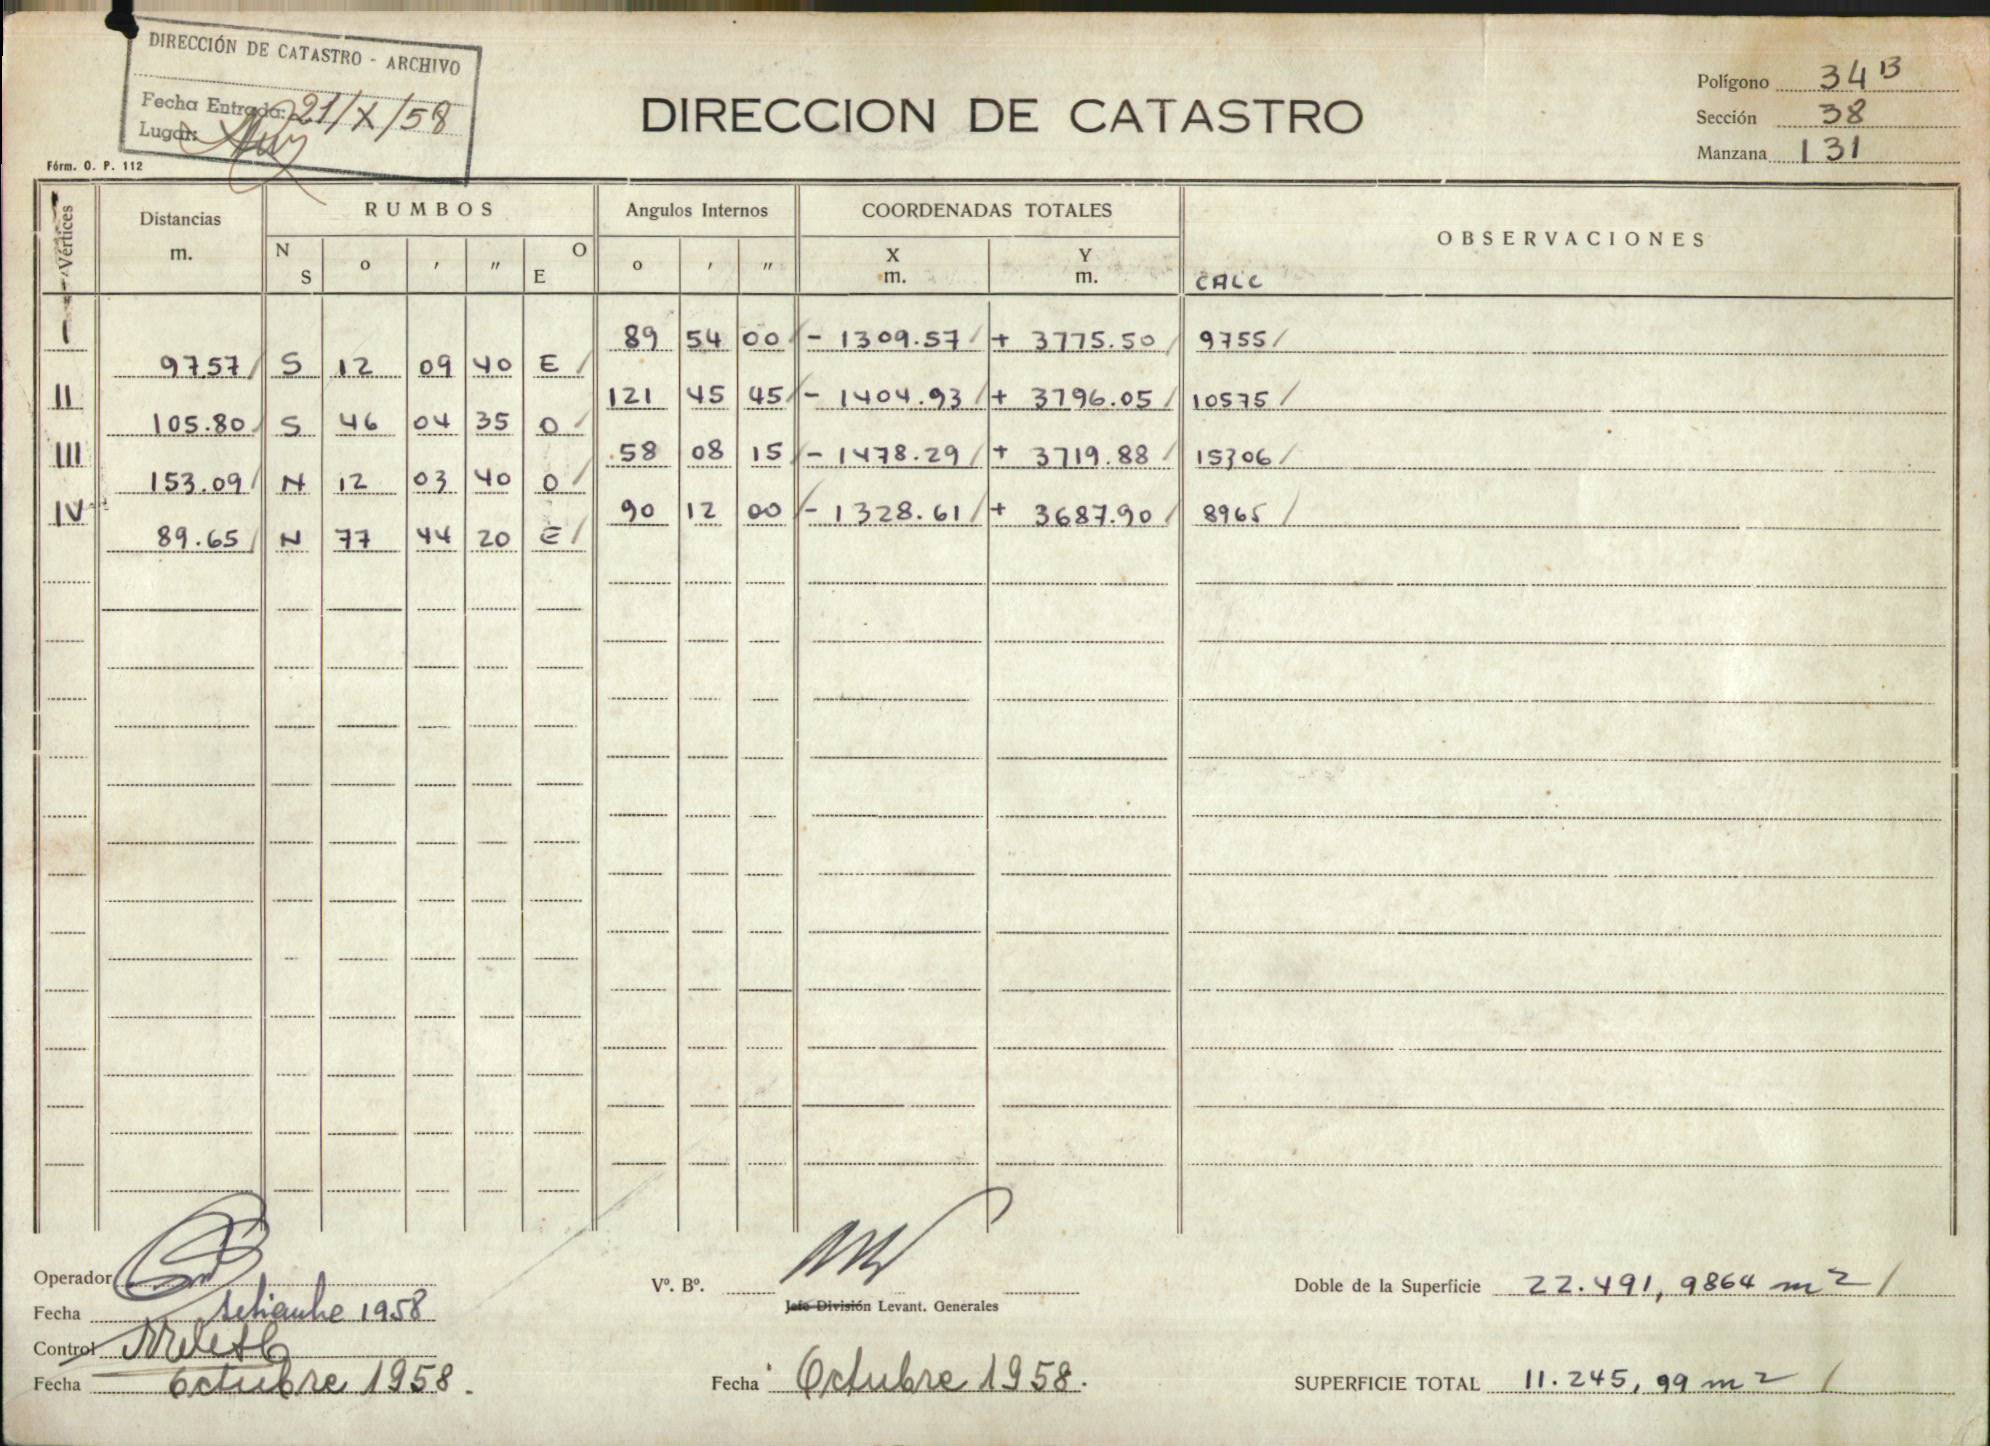 DIRECCIÓN DE CATASTRO - ARCHIVO
Fecha Entrada: 21/X/58
Lugar:
Fórm. O. P. 112
DIRECCION DE CATASTRO
Polígono 34 B
Sección 38
Manzana 131
Vértices Distancias m. RUMBOS N S o ' " O E Angulos Internos o ' " COORDENADAS TOTALES X m. Y m. OBSERVACIONES
CALC
I 89 54 00 - 1309.57 + 3775.50 9755
97.57 S 12 09 40 E
II 121 45 45 - 1404.93 + 3796.05 10575
105.80 S 46 04 35 O
III 58 08 15 - 1478.29 + 3719.88 15306
153.09 N 12 03 40 O
IV 90 12 00 - 1328.61 + 3687.90 8965
89.65 N 77 44 20 E
Operador
Fecha setiembre 1958
Control
Fecha Octubre 1958.
Vº. Bº.
Jefe División Levant. Generales
Fecha Octubre 1958.
Doble de la Superficie 22.491, 9864 m2
SUPERFICIE TOTAL 11.245, 99 m2